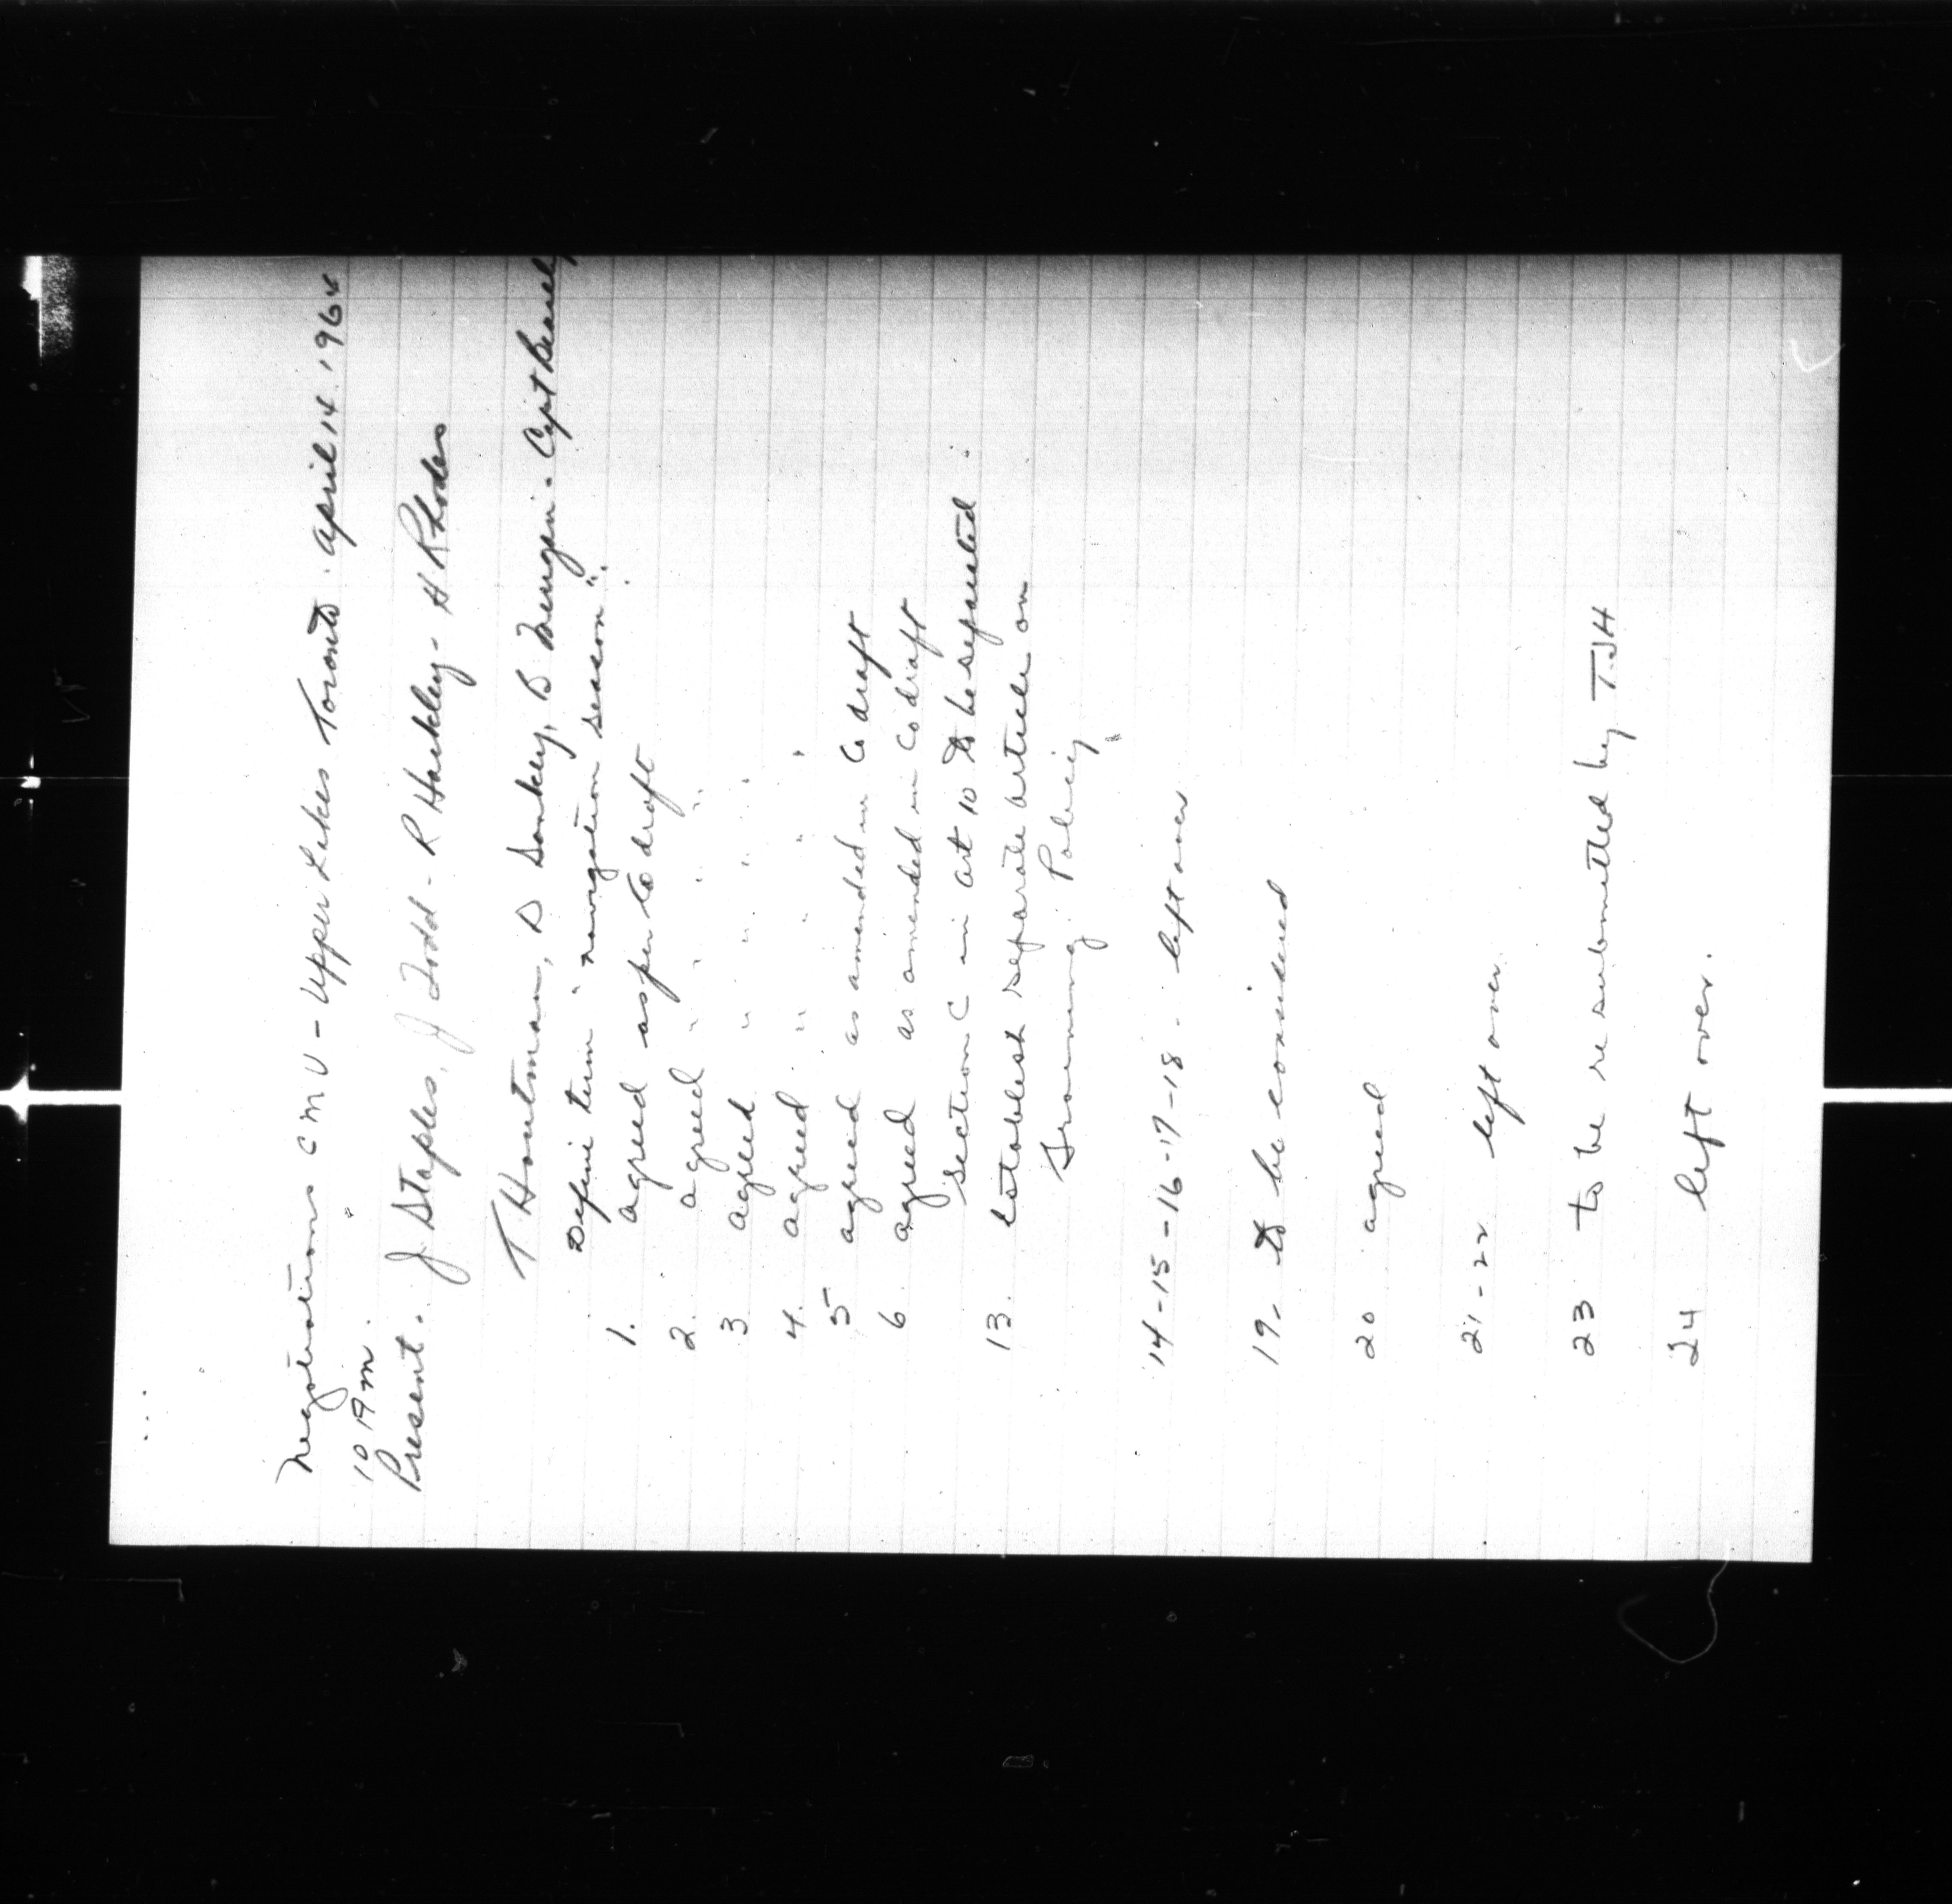 Negotiations C M U - Upper Lakes Toronto. April 14, 1964
10 AM.
Present. J Staples, J Todd - R Hackley - H Rhodes
T Houtman, D Sankey, B Merrigan. Capt
Define term "navigation season".
1. agreed as per to draft
2. agreed " " " "
3 agreed " " " "
4. agreed " " " "
5 agreed as amended in Co draft
6. agreed as amended in Co draft
section C in art 10 to be separated.
13. Establish separate article on
Policy
14-15-16-17-18 - left over
19, to be considered
20 agreed
21-22 left over.
23 to be resubmitted by TJH
24 left over.